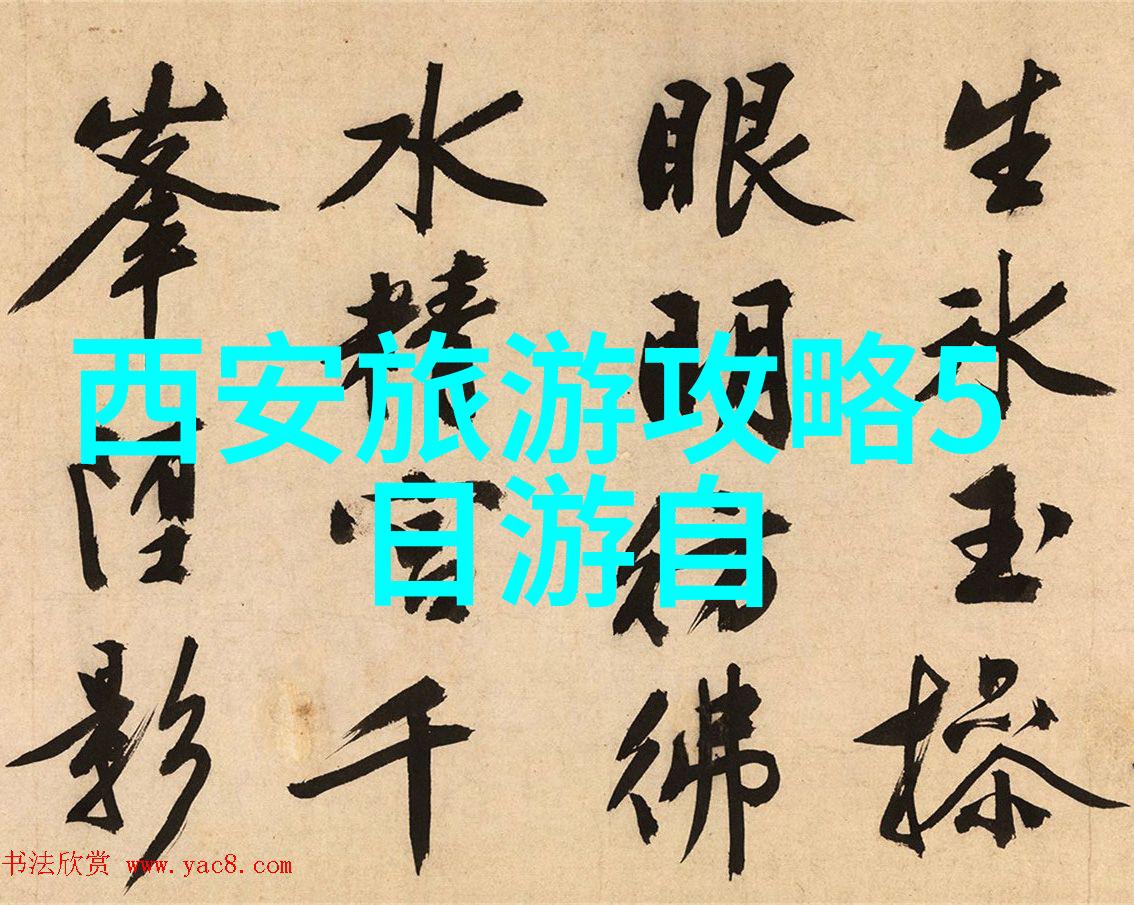 西安旅游攻略5
日游自
生氷玉操
眼明彷彿
水精宮千
峯影
书法欣赏 www.yac8.com